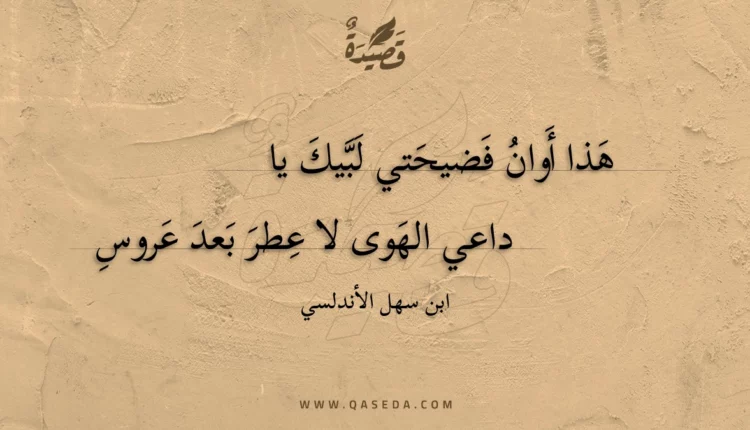 قَصِيدَةٌ
هَذا أَوانُ فَضيحَتي لَبَّيكَ يا
داعي الهَوى لا عِطرَ بَعدَ عَروسِ
ابن سهل الأندلسي
WWW.QASEDA.COM